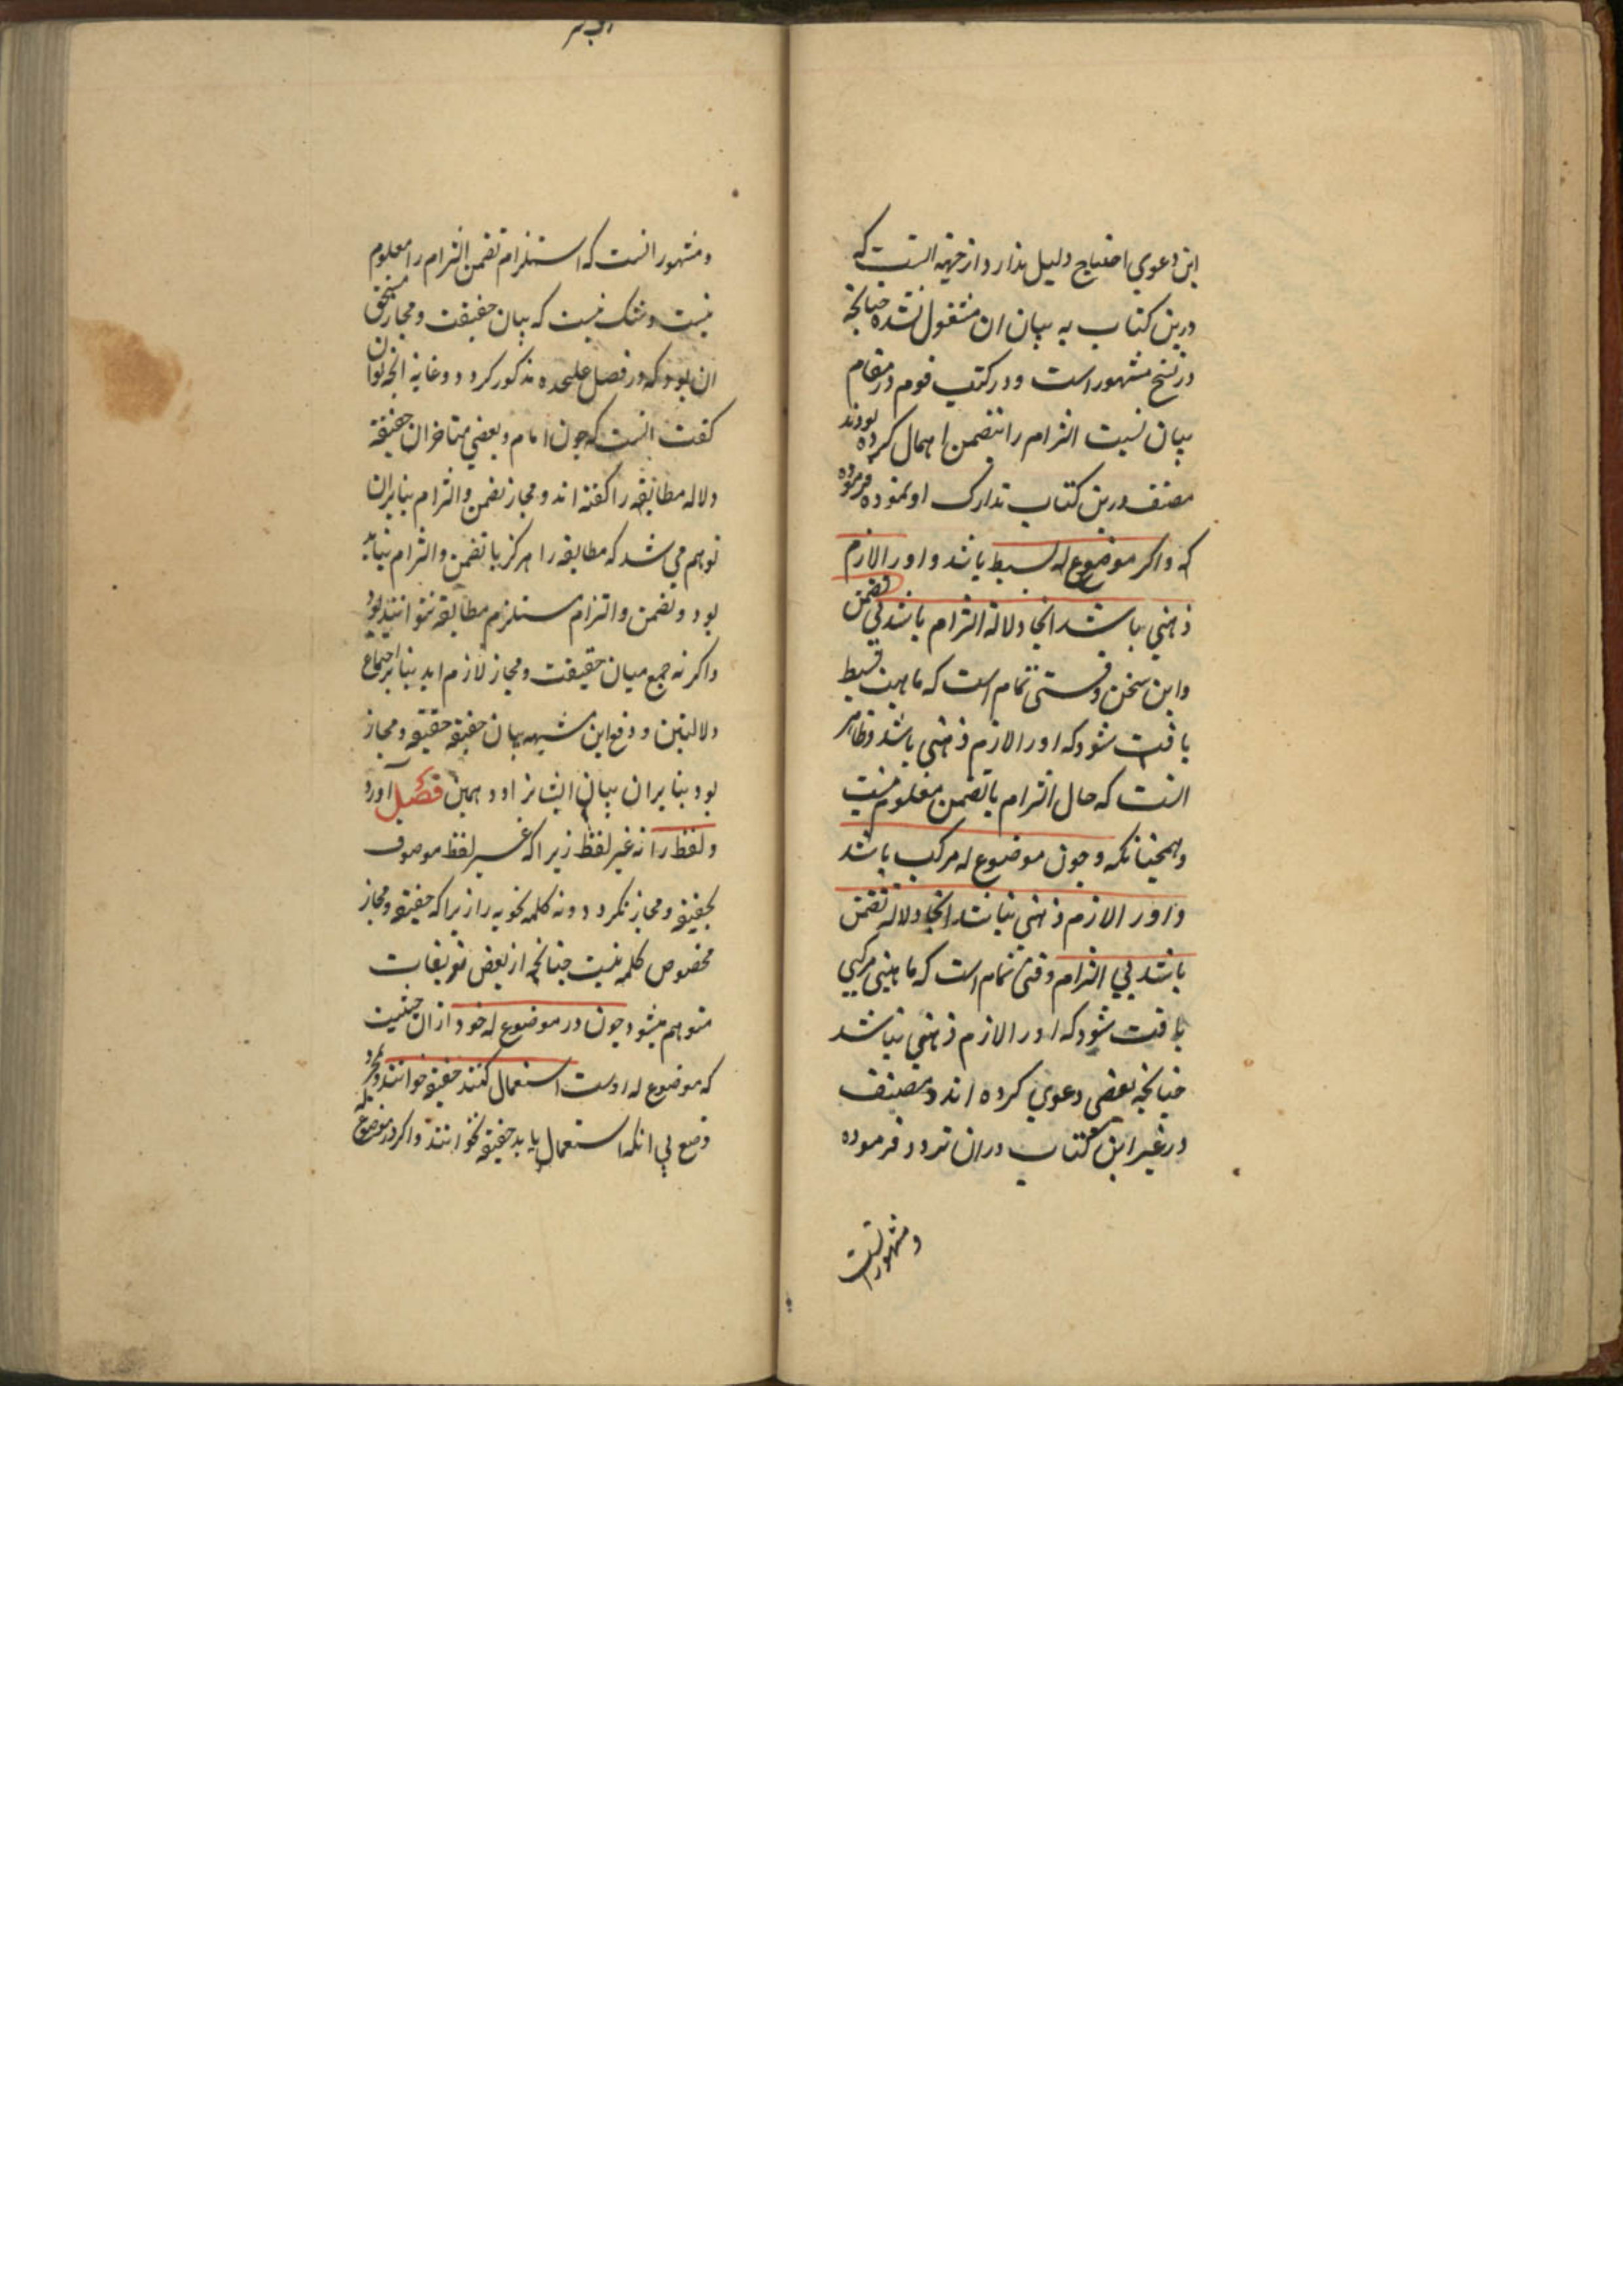 این دعوي احتیاج دلیل ندارد از جهة انست که
درین کتاب به بیان ان مشغول نشده چنانچه
در نسخ مشهور است و در کتب قوم در مقام
بیان نسبت التزام را بتضمن اهمال کرده بودند
مصنف درین کتاب تدارک او نموده فرموده
که و اکر موضوع له بسیط باشد و اورا لازم
ذهني باشد انجا دلالة التزام باشد بي تضمن
و این سخن وقتی تمام است که ماهیت بسیط
یافت شود که اورا لازم ذهني باشد و ظاهر
انست که حال التزام با تضمن معلوم نیست
و همچنانکه و چون موضوع له مرکب باشد
و اورا لازم ذهني نباشد انجا دلاله تضمن
باشد بي التزام وقتی تمام است که ماهیتی مرکبي
یافت شود که اورا لازم ذهني نباشد
چنانچه بعضی دعوي کرده اند و مصنف
در غیر این کتاب دران تردد فرموده
و مشهور انست
و مشهور انست که استلزام تضمن التزام را معلوم
نیست و شک نیست که بیان حقیقت و مجاز مستحق
ان بود که در فصل علیحده مذکور کردد و غایة انچه توان
کفت انست که چون امام و بعضي متاخران حقیقة
دلاله مطابقه را کفته اند و مجاز تضمن و التزام بنابران
توهم مي شد که مطابقه را هرکز با تضمن و التزام نباید
بود و تضمن و التزام مستلزم مطابقه نتوانند بود
و اکر نه جمع میان حقیقت و مجاز لازم اید بنابر اجتماع
دلالتین و دفع این شبهه بیان حقیقة حقیقة و مجاز
بود بنابران بیان ایشانرا در همین فصل آورد
و لفظ را نه غیر لفظ زیرا که غیر لفظ موصوف
بحقیقة و مجاز نکردد و نه کلمه نحویه را زیرا که حقیقة و مجاز
مخصوص کلمه نیست چنانچه از بعض تعریفات
متوهم میشود چون در موضوع له خود ازان حیثیت
که موضوع له اوست استعمال کنند حقیقة خوانند و بمجرد
وضع بي انکه استعمال یابد حقیقة نخوانند و اکر در موضوع له